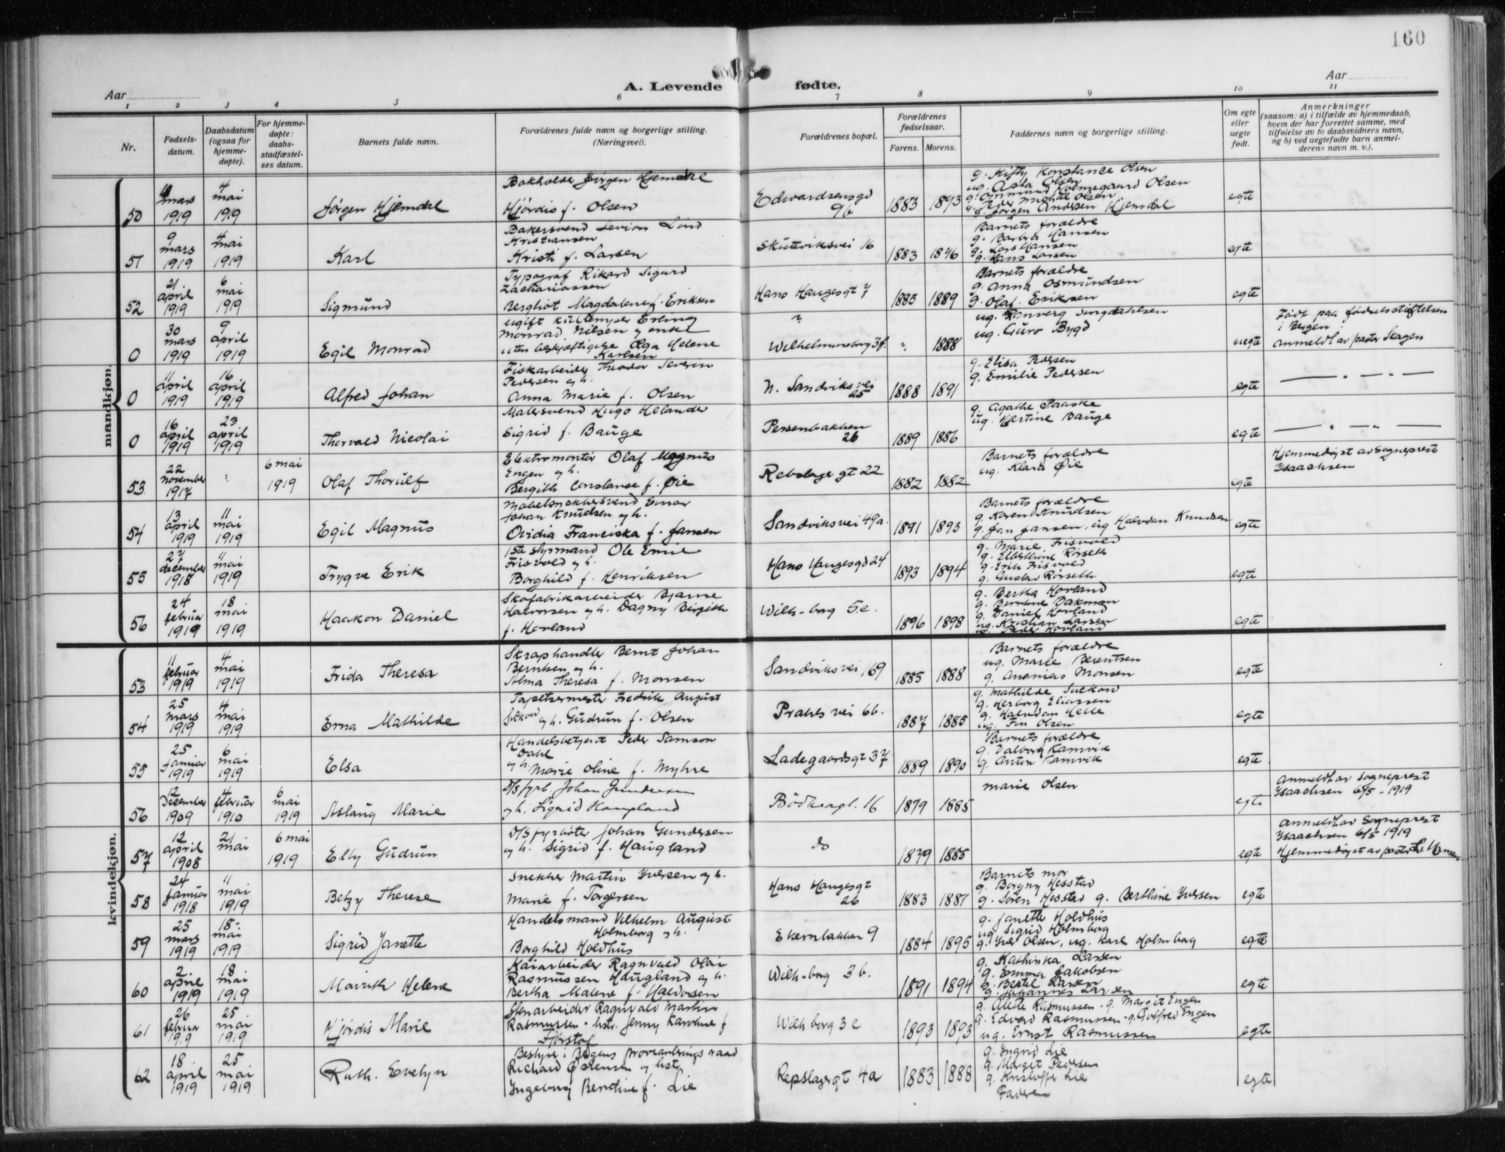 160
Aar
A. Levende fødte.
Aar
1 2 3 4 5 6 7 8 9 10 11
Nr.
Fødsels-
datum.
Daabsdatum
(ogsaa for
hjemme-
døpte).
For hjemme-
døpte:
daabs-
stadfæstel-
ses datum.
Barnets fulde navn.
Forældrenes fulde navn og borgerlige stilling.
(Næringsvei).
Forældrenes bopæl.
Forældrenes
fødselsaar.
Farens. Morens.
Faddernes navn og borgerlige stilling.
Om egte
eller
uegte
født.
Anmerkninger
(saasom: a) i tilfælde av hjemmedaab,
hvem der har forrettet samme, med
tilføielse av to daabsvidners navn,
og b) ved uegtefødte barn anmel-
derens navn m. v.).
mandkjøn.
50
mars
1919
4
mai
1919
Jørgen Hjemdal
Bokholder Jørgen Hjemdal
Hjördis f. Olsen
Edvardsensgd
9b
1883 1893
g. Konstance Olsen
ug. Asta Olsen
g. Jørgen Andssen Hjemdal
egte
51
9
mars
1919
4
mai
1919
Karl
Bakersvend Levion Lond
Kristiansen
Kristi f. Larsen
Skuteviksvei 16
1883 1896
Barnets forældre
g. Hansen
g. Lars Hansen
g. Hans Larsen
egte
52
21
april
1919
6
mai
1919
Sigmund
Typograf Rikard Sigurd
Zachariassen
Bergliot Magdalene f. Eriksen
Hans Haugesgt 7
1885 1889
Barnets forældre
g. Anna Osmundsen
g. Olaf Eriksen
egte
0
30
mars
1919
9
april
1919
Egil Monrad
ugift Erling
Monrad Nilsen og enke
uten beskjæftigelse Olga Helene
Karlsen
?
Wilhelminaborg 3f.
1888
ug.
ug. Guro Bygd
uegte
Født paa fødselsstiftelsen
i Bergen;
anmeldt av pastor Skagen
0
11
april
1919
16
april
1919
Alfred Johan
Fiskarbeider Theodor Severin
Pedersen og h.
Anna Marie f. Olsen
N. Sandviksvei
25
1888 1891
g. Elisa Pedersen
g. Emilie Pedersen
egte
— " — " —
0
16
april
1919
23
april
1919
Thorvald Nicolai
Malersvend Hugo Helander
Sigrid f. Bauge
Persenbakken
26
1889 1886
g. Agathe Paaske
ug. Hertine Bauge
egte
— " — " —
53
22
november
1917
6 mai
1919
Olaf Thorulf
Elektromontør Olaf Magnus
Engen og h.
Bergith Constanse f. Øie
Rebslager gt 22
1882 1882
Barnets forældre
ug. Klara Øie
egte
Hjemmedøpt av Sogneprest
Isaachsen
54
13
april
1919
11
mai
1919
Egil Magnus
Møbelsnekkersvend Einar
Johan Knudsen og h.
Ovidia Franciska f. Jansen
Sandviksvei 49a.
1891 1893
Barnets forældre
g. Karen Knudsen
g. Jan Jansen, ug Halvdan Knudsen
egte
55
27
december
1918
11
mai
1919
Trygve Erik
1ste Styrmand Ole Emil
Frisvold og h.
Borghild f. Henriksen
Hans Haugesgd 24
1893 1894
g. Marie Frisvold
g. Rörseth
g. Erik Frisvold
g. Gustav Rörseth
egte
56
24
februar
1919
18
mai
1919
Haakon Daniel
Skofabrikarbeider Bjarne
Halvorsen og h. Dagny Birgithe
f. Hovland
Wilh-borg 5e.
1896 1898
g. Bertha Hovland
g. Bakman
g. Daniel Hovland
ug. Kristian Larsen
ug. Peder Hovland
egte
kvindekjøn.
53
11
februar
1919
4
mai
1919
Frida Theresa
Skraphandler Bernt Johan
Berntsen og h.
Alma Theresa f. Monsen
Sandviksvei 169
1885 1888
Barnets forældre
ug. Marie Berentsen
g. Ananias Monsen
egte
54
25
mars
1919
4
mai
1919
Erna Mathilde
Tapetsermester Fredrik August
og h. Gudrun f. Olsen
Prahls vei 6b.
1887 1885
g. Mathilde
g. Herborg Eliassen
g. Halvdan Helle
ug. Olsen
egte
55
25
januar
1919
6
mai
1919
Elsa
Handelsbetjent Peder Samson
Dahl
og h. Marie Oline f. Myhre
Ladegaardsgt 37
1889 1890
Barnets forældre
g. Valborg Ramvik
g. Anton Ramvik
egte
56
12
December
1909
4
februar
1910
6
mai
1919
Aslaug Marie
D/S fyrb Johan Gundersen
og h. Sigrid Haugland
16
1879 1885
Marie Olsen
egte
Anmeldt av Sogneprest
Isaachsen 6/5 - 1919
57
12
april
1908
21
mai
6 mai
1919
Elly Gudrun
D/S fyrböte Johan Gundersen
og h. Sigrid f. Haugland
do
1879 1885
egte
Anmeldt av Sogneprest
Isaachsen 6/5 1919
Hjemmedøpt av pastor
58
24
januar
1918
11
mai
1919
Betzy Therese
Snekker Martin Iversen og h.
Marie f. Torgersen
Hans Haugesgt
26
1883 1887
Barnets mor
g. Borgny Hesstad
g. Sören Hesstad g. Berthine Iversen
egte
59
25
mars
1919
18
mai
1919
Sigrid Janette
Handelsmand Vilhelm August
Holmborg og h.
Borghild Holdhus
Ekernbakken 9
1884 1895
g. Janette Holdhus
ug. Sigrid Holmborg
g. Olsen, ug. Karl Holmborg
egte
60
2
april
1919
18
mai
1919
Helene
Kaiarbeider Ragnvald Olai
Rasmussen Haugland og h.
Bertha Malene f. Halvorsen
Wilh-borg 3b.
1891 1894
g. Kathinka Larsen
g. Emma Jakobsen
g. Bertel Larsen
g. Johannes Larsen
egte
61
26
februar
1919
25
mai
1919
Hjördis Marie
Stenarbeider Ragnvald Martin
Rasmussen hstr. Jenny Karoline f.
Wilh borg 3e
1893 1893
g. Alette Rasmussen - g. Margit Engen
g. Edvard Rasmussen - g. Gotfred Engen
ug. Ernst Rasmussen
egte
62
18
april
1919
25
mai
1919
Ruth. Evelyn
Bestyrer i Byens provianteringsraad
Richard Østensen og hstr
Ingeborg Berntine f. Lie
Repslagergt 4a
1883 1888
g. Ingrid Lie
g. Margit Pedersen
g. Kristoffer Lie
Faderen
egte